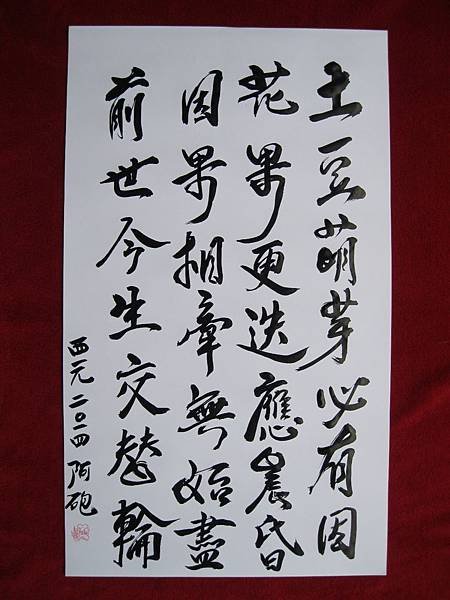 土豆萌芽必有因
花果更迭應晨昏
因果相牽無始盡
前世今生交替輪
西元二〇一四 阿砲